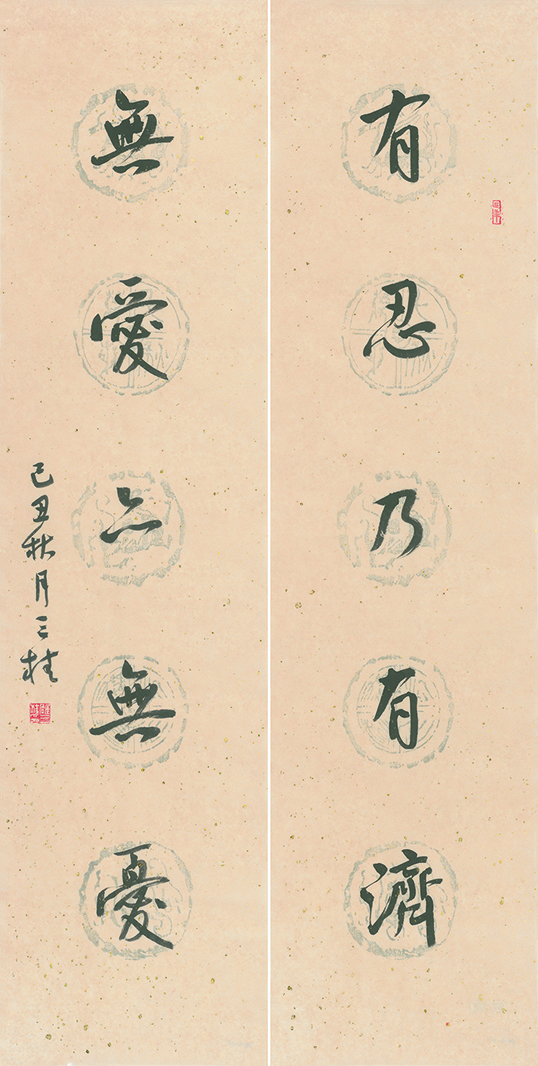 有忍乃有濟
無愛亦無憂
己丑秋月三桂